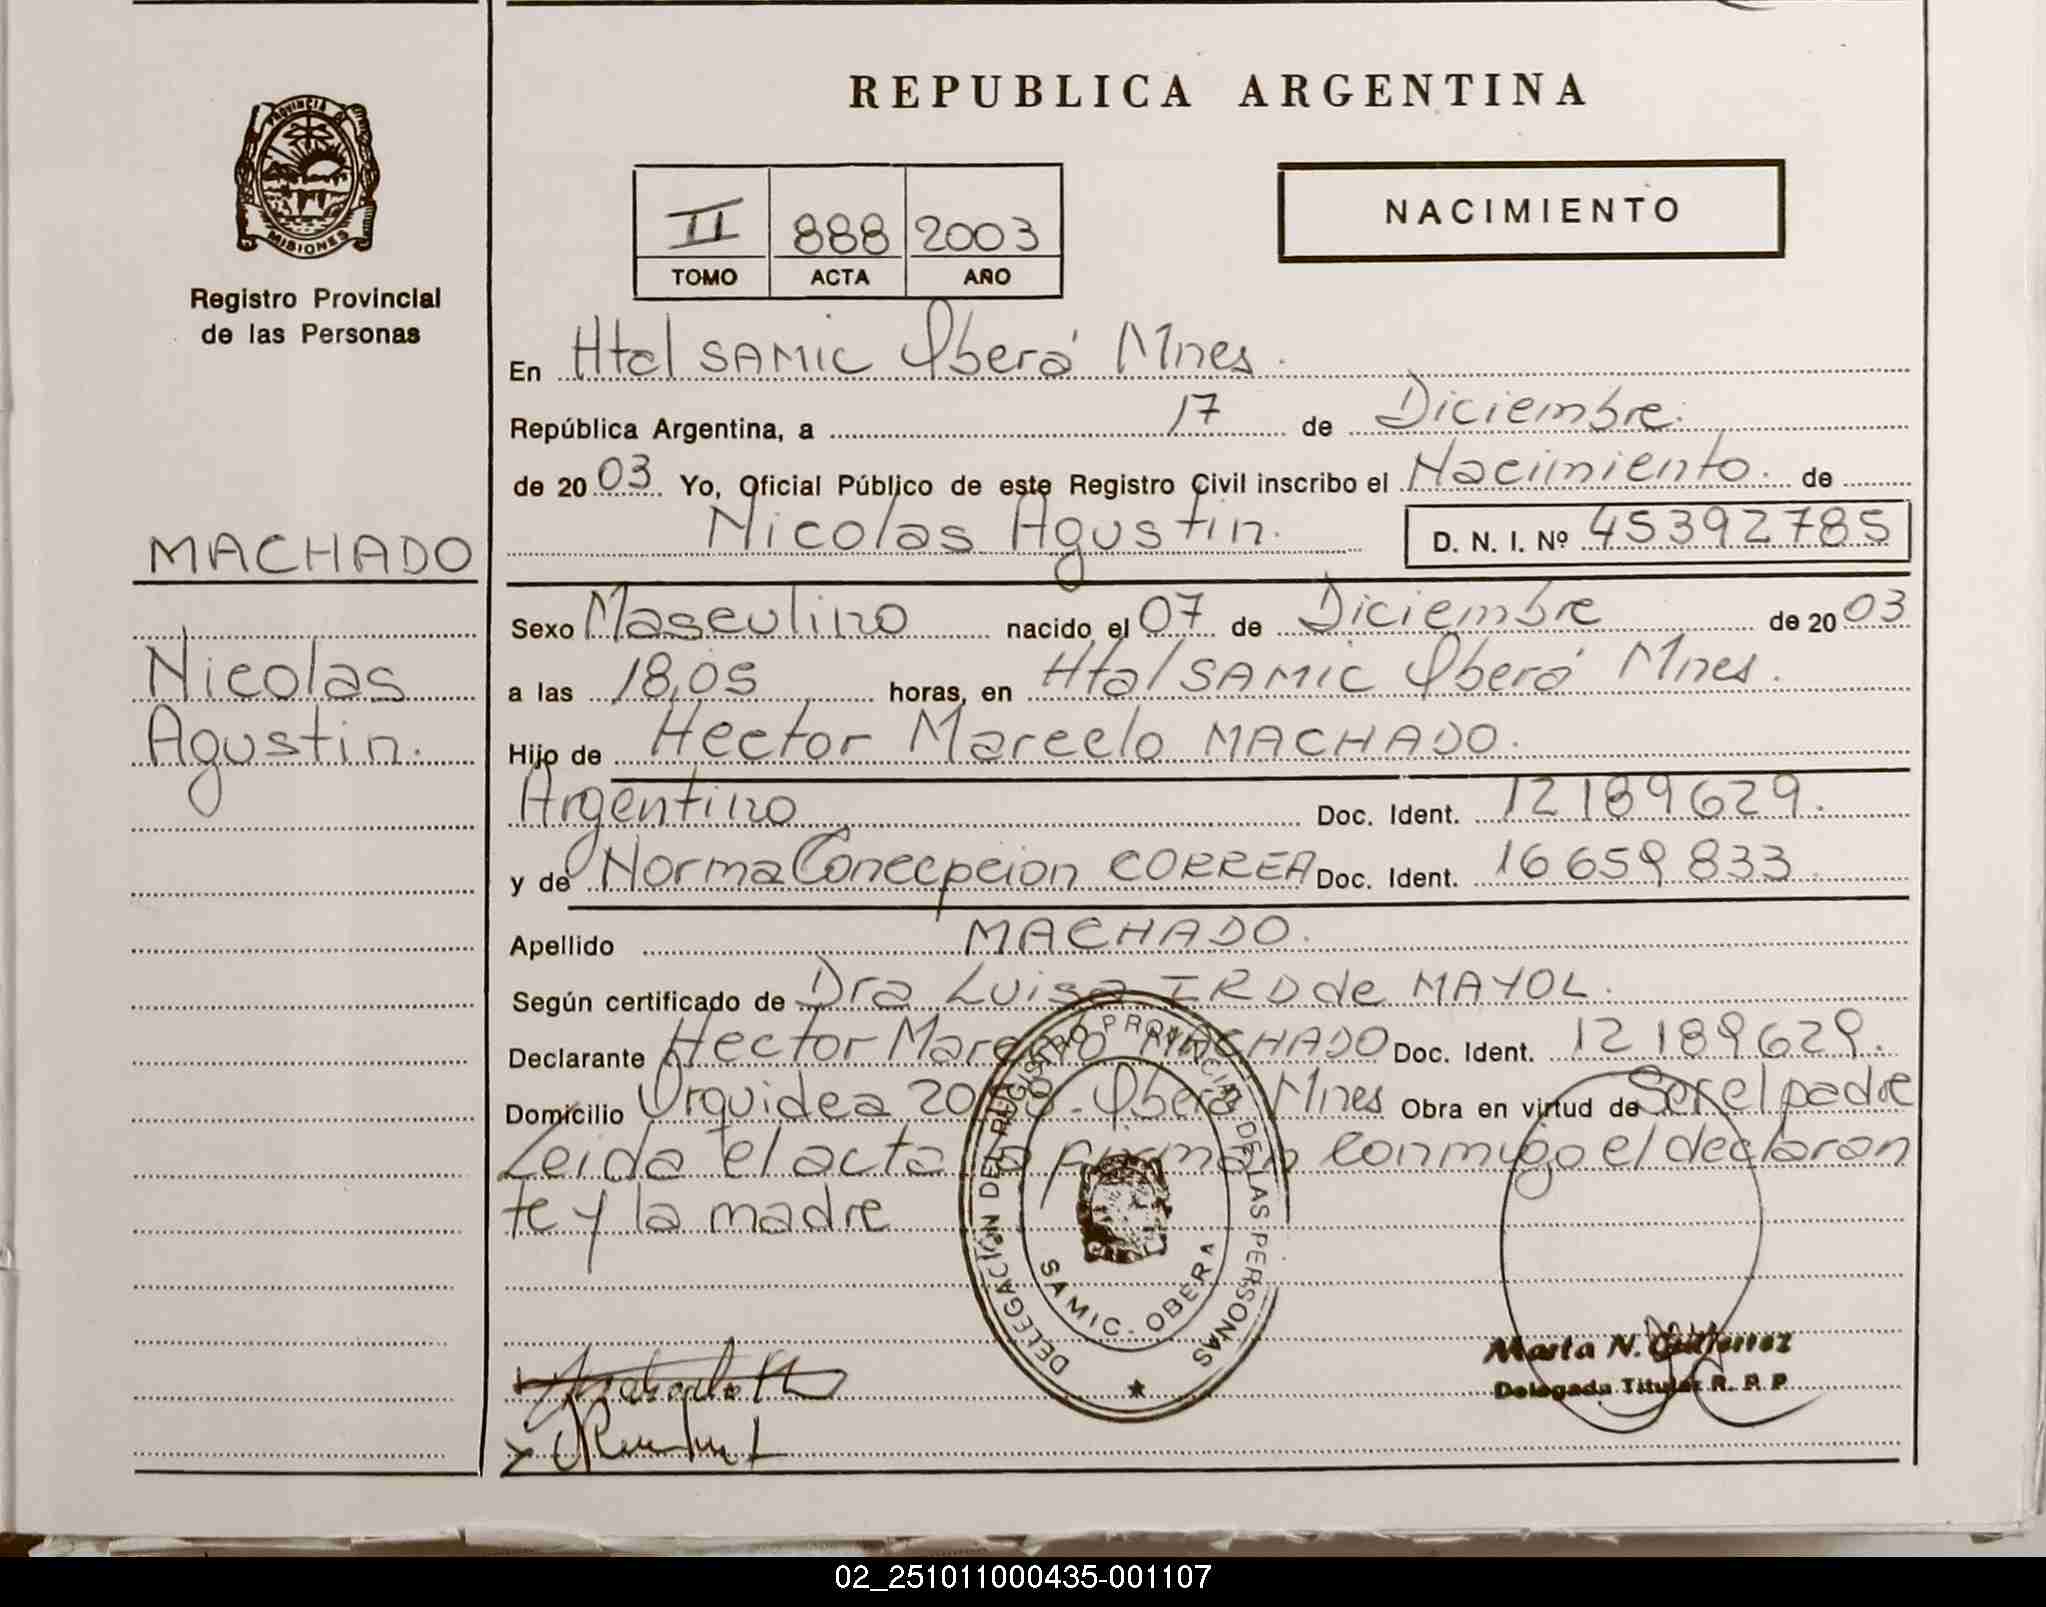 REPUBLICA ARGENTINA
PROVINCIA DE MISIONES
Registro Provincial
de las Personas
II 888 2003
TOMO ACTA AÑO
NACIMIENTO
En Htal SAMIC Oberá Mnes.
República Argentina, a 17 de Diciembre.
de 2003 Yo, Oficial Público de este Registro Civil inscribo el Nacimiento. de
Nicolas Agustin. D. N. I. Nº 45392785
MACHADO
Nicolas
Agustin.
Sexo Masculino nacido el 07 de Diciembre de 2003
a las 18,05 horas, en Htal SAMIC Oberá Mnes.
Hijo de Hector Marcelo MACHADO.
Argentino Doc. Ident. 12189629.
y de Norma Conecpcion CORREA Doc. Ident. 16659833
Apellido MACHADO.
Según certificado de Dra Luisa IRD de MAYOL.
Declarante Hector Marcelo MACHADO Doc. Ident. 12189629.
Domicilio Orquidea Oberá Mnes Obra en virtud de Ser el padre
Leida el acta la firman conmigo el declaran
te y la madre
DELEGACIÓN DEL REGISTRO PROVINCIAL DE LAS PERSONAS
SAMIC - OBERA
Marta N. Gutierrez
Delegada Titular R. P. P.
02_251011000435-001107